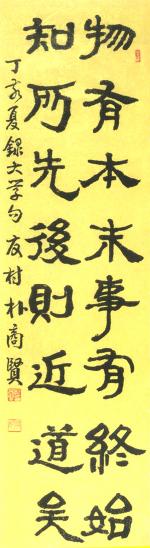 物有本末事有終始
知所先後則近道矣
丁亥夏録大学句友村朴商賢